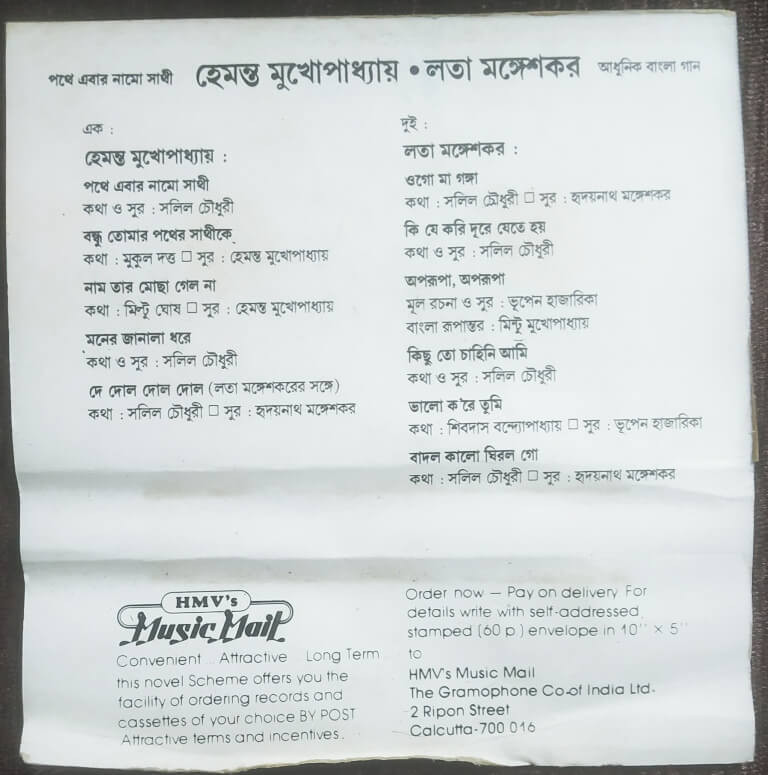 পথে এবার নামো সাথী হেমন্ত মুখোপাধ্যায় • লতা মঙ্গেশকর আধুনিক বাংলা গান
এক :
হেমন্ত মুখোপাধ্যায় :
পথে এবার নামো সাথী
কথা ও সুর : সলিল চৌধুরী
বন্ধু তোমার পথের সাথীকে
কথা : মুকুল দত্ত □ সুর : হেমন্ত মুখোপাধ্যায়
নাম তার মোছা গেল না
কথা : মিন্টু ঘোষ □ সুর : হেমন্ত মুখোপাধ্যায়
মনের জানালা ধরে
কথা ও সুর : সলিল চৌধুরী
দে দোল দোল দোল (লতা মঙ্গেশকরের সঙ্গে)
কথা : সলিল চৌধুরী □ সুর : হৃদয়নাথ মঙ্গেশকর
দুই :
লতা মঙ্গেশকর :
ওগো মা গঙ্গা
কথা : সলিল চৌধুরী □ সুর : হৃদয়নাথ মঙ্গেশকর
কি যে করি দূরে যেতে হয়
কথা ও সুর : সলিল চৌধুরী
অপরূপা, অপরূপা
মূল রচনা ও সুর : ভূপেন হাজারিকা
বাংলা রূপান্তর : মিন্টু মুখোপাধ্যায়
কিছু তো চাহিনি আমি
কথা ও সুর : সলিল চৌধুরী
ভালো ক'রে তুমি
কথা : শিবদাস বন্দ্যোপাধ্যায় □ সুর : ভূপেন হাজারিকা
বাদল কালো ঘিরল গো
কথা : সলিল চৌধুরী □ সুর : হৃদয়নাথ মঙ্গেশকর
HMV's
Music Mail
Convenient... Attractive... Long Term...
this novel Scheme offers you the
facility of ordering records and
cassettes of your choice BY POST
Attractive terms and incentives.
Order now — Pay on delivery For
details write with self-addressed
stamped (60 p) envelope in 10" × 5"
to
HMV's Music Mail
The Gramophone Co. of India Ltd.
2 Ripon Street
Calcutta-700 016